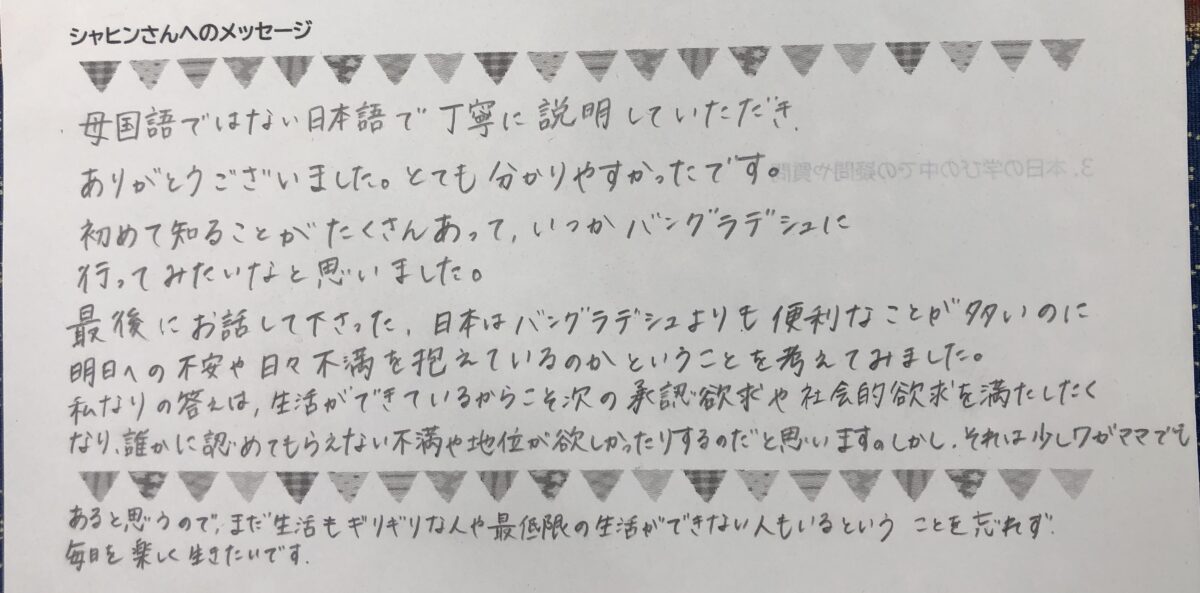 シャヒンさんへのメッセージ
母国語ではない日本語で丁寧に説明していただき、
ありがとうございました。とても分かりやすかったです。
3. 本日の学びの中での疑問や質問
初めて知ることがたくさんあって、いつかバングラデシュに
行ってみたいなと思いました。
最後にお話して下さった、日本はバングラデシュよりも便利なことが多いのに
明日への不安や日々不満を抱えているのかということを考えてみました。
私なりの答えは、生活ができているからこそ次の承認欲求や社会的欲求を満たしたく
なり、誰かに認めてもらえない不満や地位が欲しかったりするのだと思います。しかし、それは少しワガママでも
あると思うので、まだ生活もギリギリな人や最低限の生活ができない人もいるということを忘れず、
毎日を楽しく生きたいです。